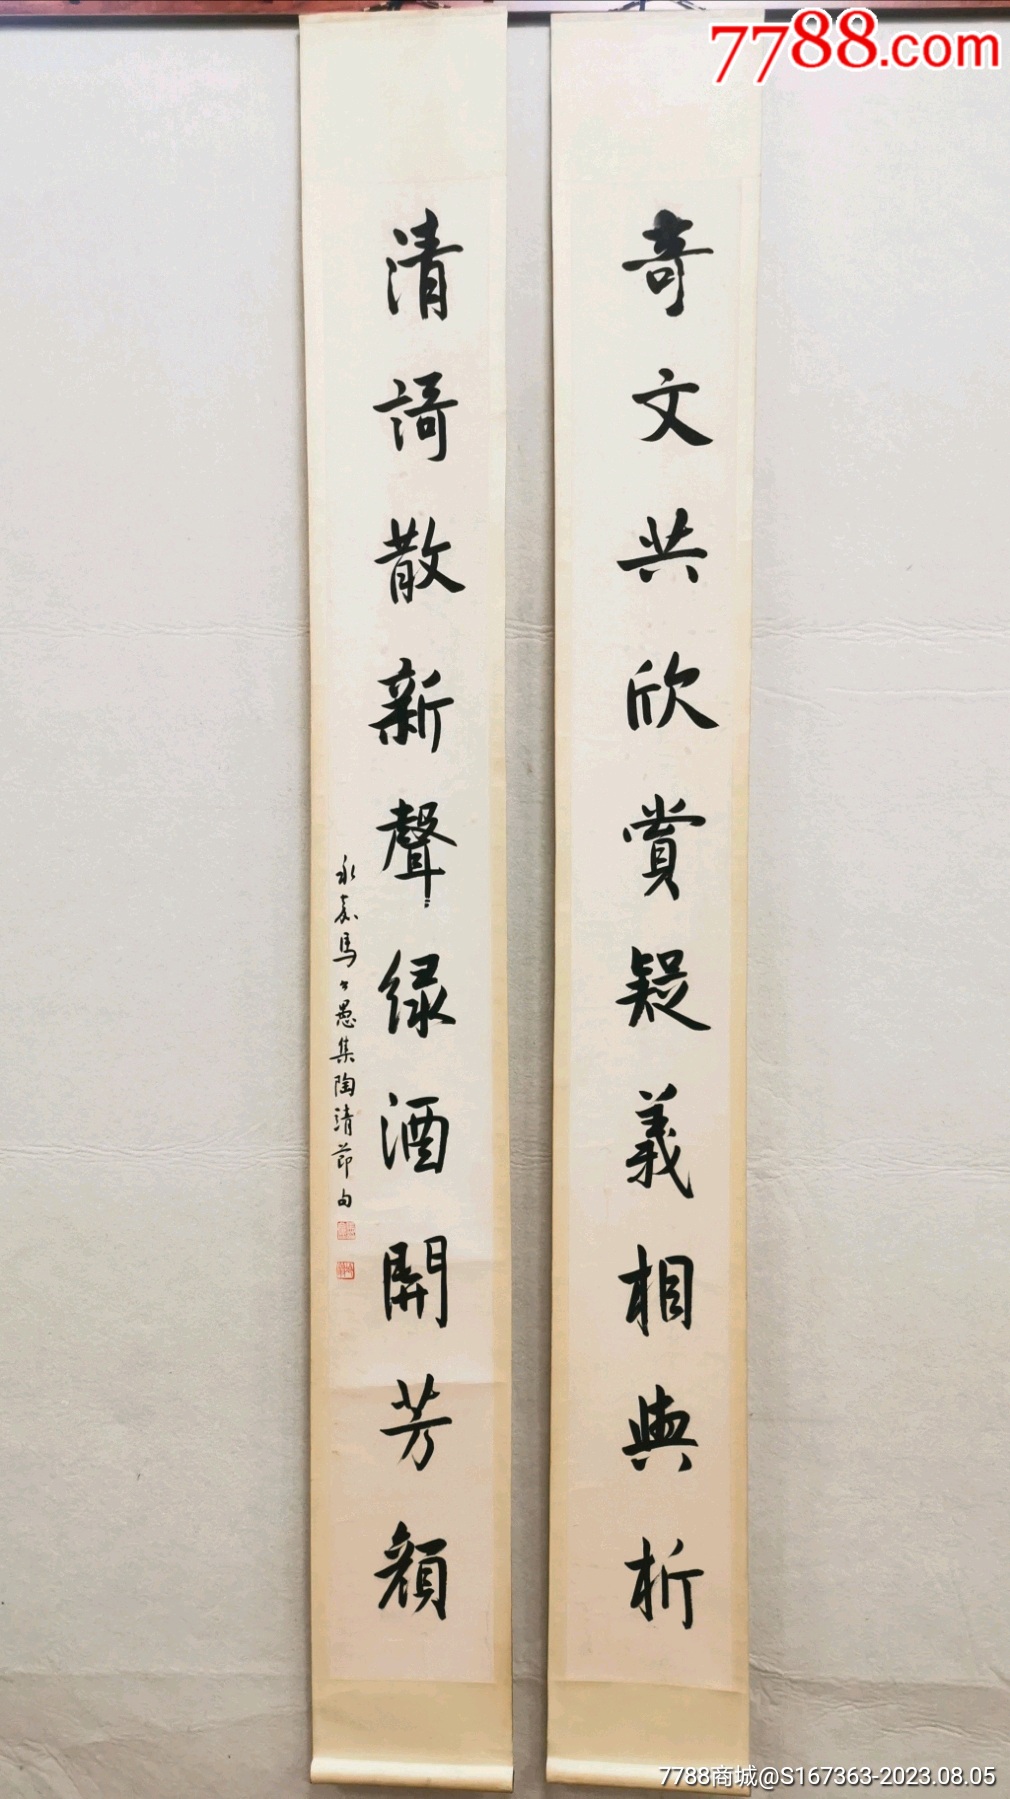 奇文共欣賞疑義相與析
清謌散新聲緑酒開芳顏
永嘉馬公愚集陶清節句
7788.com
7788商城@S167363-2023.08.05